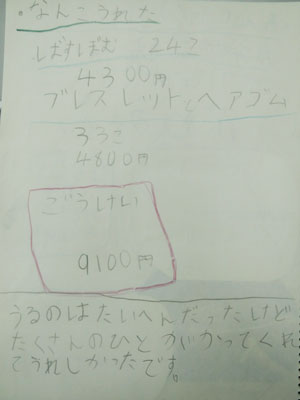 •なんこうれた
しばすばむ 242
4300円
ブレスレットとヘアゴム
33こ
4800円
ごうけい
9100円
うるのはたいへんだったけど
たくさんのひとがかってくれ
てうれしかったです。